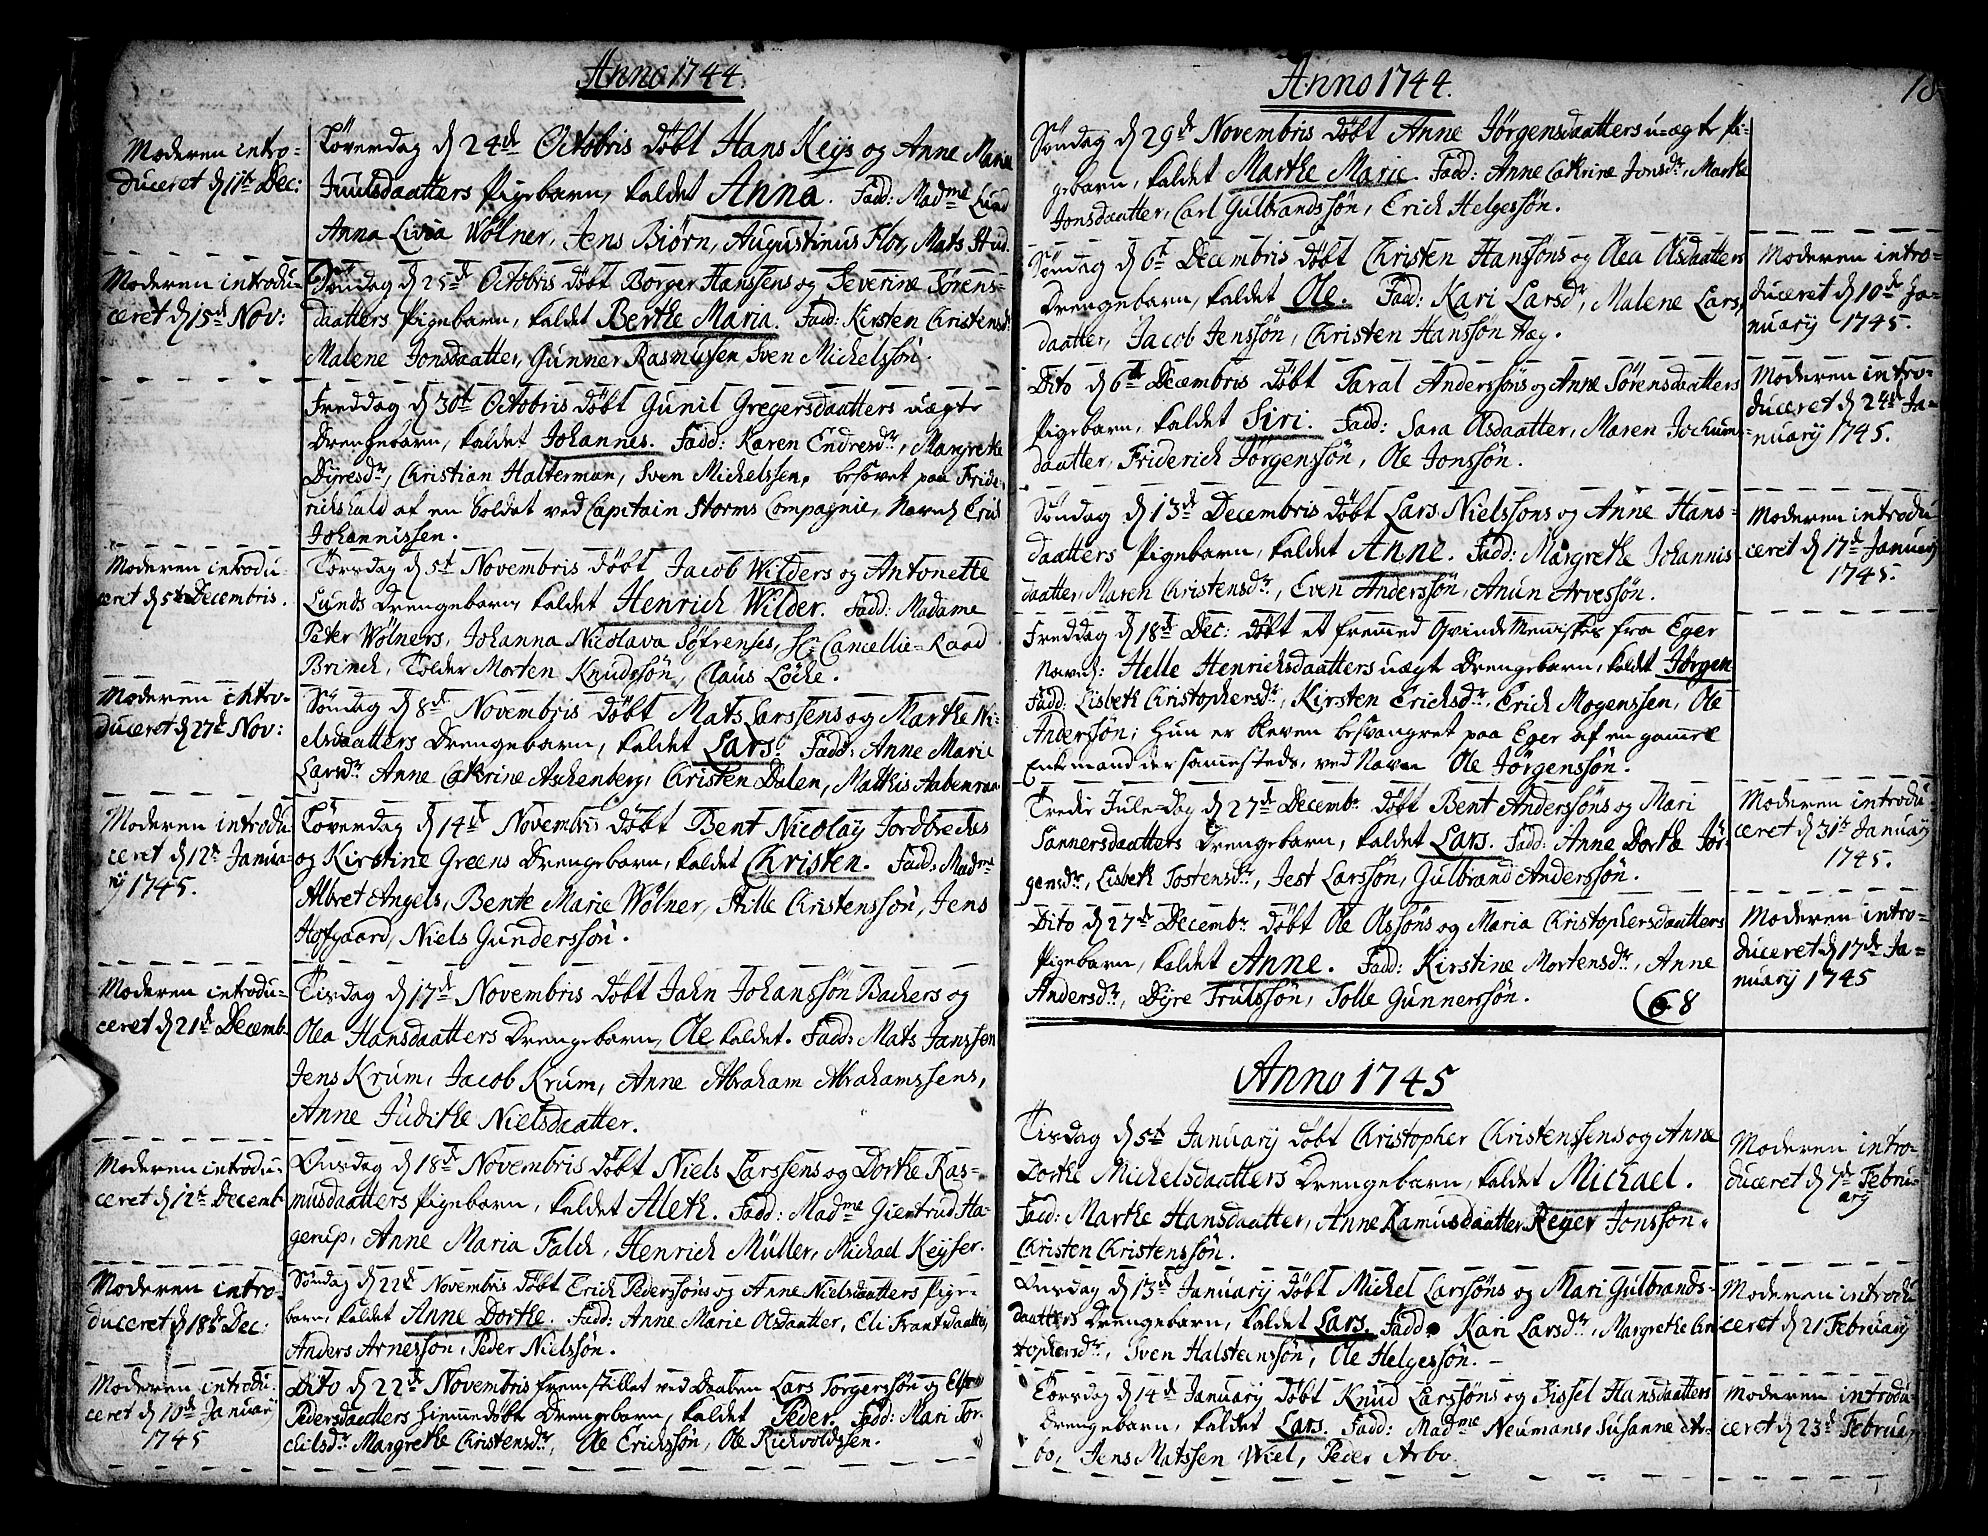 Anno 1744.
Moderen intro-
duceret d 11te Dec:
Löverdag d 24de Octobris döbt Hans Keijs og Anne Maria
Juulsdaatters Pigebarn, kaldet Anna. Fadd: Madme Lund
Anna Livia Wölner, Jens Biørn, Augustinus Flor, Mats Stud.
Moderen introdu-
ceret d 15de Nov:
Söndag d 25de Octobris döbt Borger Hanssens og Severine Sørens-
daatters Pigebarn, kaldet Berthe Maria. Fadd: Kirsten Christensdr
Malene Jonsdaatter, Gunner Rasmussen, Sven Michelssön.
Freddag d 30te Octobris döbt Gunil Gregersdaatters uægte
Drengebarn, kaldet Johannes. Fadd: Karen Endresdr, Margrethe
Dÿresdr, Christian Halterman, Sven Michelssen, besovet paa Fride-
richshald af en Soldat ved Capitain Storms Compagnie, Navnl Erich
Johannissen.
Moderen introdu-
ceret d 5te Decembris.
Torsdag d 5te Novembris döbt Jacob Wilders og Antonette
Lunds Drengebarn, kaldet Henrich Wilder. Fadd: Madame
Peder Wölners, Johanna Nicolava Söfrenses, Hr Cancellie-Raad
Brinch, Tolder Morten Knudssön, Claus Löche.
Moderen intro-
duceret d 27de Nov:
Söndag d 8de Novembris döbt Mats Larssens og Marthe Ni-
elsdaatters Drengebarn, kaldet Lars. Fadd: Anne Marie
Larsdr Anne Cathrine Aschenberg, Christen Dalen, Mathis Aabenraa
Moderen introdu-
ceret d 12te Janua-
rij 1745.
Löverdag d 14de Novembris döbt Bent Nicolaÿ Jordbreches
og Kirstine Greens Drengebarn, kaldet Christen. Fadd: Madme
Albret Angels, Bente Marie Wölner, Stille Christenssön, Jens
Hofgaard, Niels Gunderssön.
Moderen introdu-
ceret d 21de Decemb.
Tisdag d 17de Novembris döbt Jahn Johanssön Bachers og
Olea Hansdaatters Drengebarn, Ole kaldet. Fadd: Mats Janssen
Jens Krum, Jacob Krum, Anne Abraham Abrahamssens,
Anne Judithe Nielsdaatter.
Moderen introdu-
ceret d 12te Decemb
Onsdag d 18de Novembris döbt Niels Larssens og Dorthe Ras-
musdaatters Pigebarn, kaldet Aleth. Fadd: Madme Giertrud Ha-
gerup, Anne Maria Falch, Henrich Müller, Michael Keÿser.
Moderen intro-
duceret d 18de Dec:
Söndag d 22de Novembris döbt Erich Pederssöns og Anne Nielsdaatters Pige-
barn, kaldet Anne Dorthe. Fadd: Anne Marie Olsdaatter, Eli Frantsdaatter,
Anders Arnessön, Peder Nielssön.
Moderen introdu-
ceret d 10de Januarij
1745
Dito d 22de Novembris fremstillet ved Daaben Lars Torgerssön og
Pedersdaatters hiemmedöbte Drengebarn, kaldet Peder. Fadd: Mari Tor-
chilsdr Margrethe Christensdr, Ole Erichssön, Ole Richvoldssen.
Anno 1744.
Söndag d 29de Novembris döbt Anne Jörgensdaatters u-ægte Pi-
gebarn, kaldet Marthe Marie. Fadd: Anne Cathrine Jonsdr, Marthe
Jonsdaatter, Carl Gulbrandssön, Erich Helgessön.
Söndag d 6te Decembris döbt Christen Hanssöns og Olea Olsdaatters
Drengebarn, kaldet Ole. Fadd: Kari Larsdr, Malene Lars
daatter, Jacob Jenssön, Christen Hanssön Hæg.
Moderen intro-
duceret d 10de Ja-
nuarij 1745.
Dito d 6te Decembris döbt Taral Anderssöns og Anne Sörensdaatters
Pigebarn, kaldet Siri. Fadd: Sara Olsdaatter, Maren Jochums-
daatter, Friderich Jörgenssön, Ole Jonssön.
Moderen intro-
duceret d 24de Ja-
nuarij 1745.
Söndag d 13de Decembris döbt Lars Nielssons og Anne Hans-
daatters Pigebarn, kaldet Anne. Fadd: Margrethe Johannis
daatter, Maren Christensdr, Even Anderssön, Anun Arvessön.
Moderen introdu
ceret d 17de Januarij
1745.
Freddag d 18de Dec: döbt et fremmed Qvinde Menniske fra Eger
Navnl: Helle Henrichsdaatters uægte Drengebarn, kaldet Jörgen
Fadd: Lisbeth Christophersdr, Kirsten Erichsdr, Erich Mogenssen, Ole
Anderssön; hun er bleven besvangret paa Eger af en gammel
Enkemand der sammesteds, ved Navn Ole Jörgenssön.
Tredie Jule-Dag d 27de Decembr döbt Bent Anderssöns og Mari
Gunnersdaatters Drengebarn, kaldet Lars. Fadd: Anne Dorthe Jör-
gensdr, Lisbeth Tostensdr, Jest Larssön, Gulbrand Anderssön.
Moderen introdu-
ceret d 31te Januarij
1745.
Dito d 27de Decembr döbt Ole Olssöns og Maria Christophersdaatters
Pigebarn, kaldet Anne. Fadd: Kirstine Mortensdr, Anne
Andersdr, Dÿre Trulssön, Tolle Gunnerssön. 68
Moderen intro-
duceret d 17de Ja-
nuarij 1745
Anno 1745
Tisdag d 5te Januarij döbt Christopher Christenssens og Anne
Dorthe Michelsdaatters Drengebarn, kaldet Michael.
Fadd: Marthe Hansdaatter, Anne Ramusdaatter, Reÿer Jonssön,
Christen Christenssön.
Moderen intro-
duceret d 7de Febru-
arij
Onsdag d 13de Januarij döbt Michel Larssöns og Mari Gulbrands-
daatters Drengebarn, kaldet Lars. Fadd: Kari Larsdr, Margrethe Chri-
stophersdr, Sven Halsteinssön, Ole Helgessön.
Moderen introdu
ceret d 21 Februarij
Torsdag d 14de Januarij döbt Knud Larssöns og Sissel Hansdaatters
Drengebarn, kaldet Lars. Fadd: Madme Neumans, Susanne Ar-
bo, Jens Matssen Wiel, Peder Arbo.
Moderen introdu-
ceret d 23de Februarij